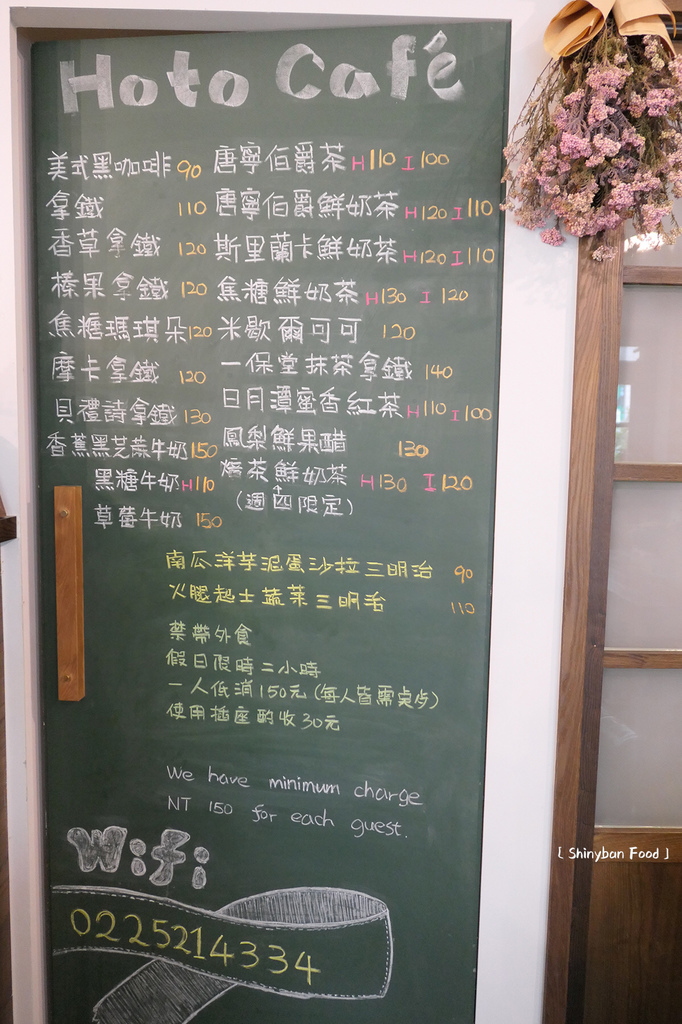 Hoto Café
美式黑咖啡 90
拿鐵 110
香草拿鐵 120
榛果拿鐵 120
焦糖瑪琪朵 120
摩卡拿鐵 120
貝禮詩拿鐵 130
香蕉黑芝麻牛奶 150
黑糖牛奶 H110
草莓牛奶 150
唐寧伯爵茶 H110 I100
唐寧伯爵鮮奶茶 H120 I110
斯里蘭卡鮮奶茶 H120 I110
焦糖鮮奶茶 H130 I 120
米歇爾可可 120
一保堂抹茶拿鐵 140
日月潭蜜香紅茶 H110 I100
鳳梨鮮果醋 130
燒茶鮮奶茶 H130 I120
(週四限定)
南瓜洋芋泥蛋沙拉三明治 90
火腿起士蔬菜三明治 110
禁帶外食
假日限時二小時
一人低消150元(每人皆需桌步)
使用插座酌收30元
We have minimum charge
NT 150 for each guest.
Wifi
0225214334
[ Shinyban Food ]